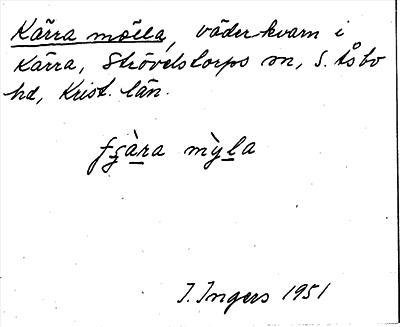 Kärra mölla, väderkvarn i
Kärra, Strövelstorps sn, S. Åsbo
hd, Krist. län.
mỳla
I. Ingers 1951